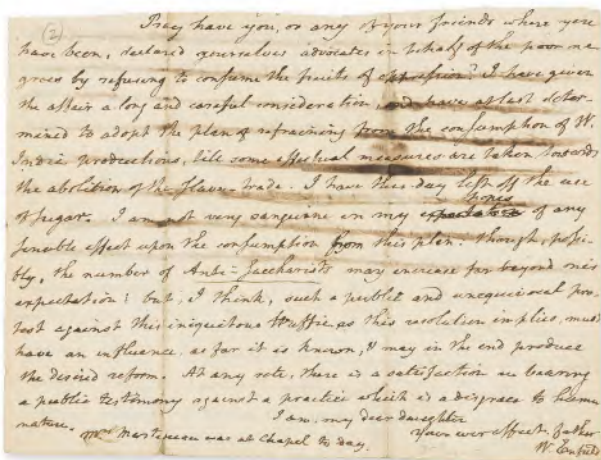 (2)
Pray have you, or any of your friends where you
have been, declared yourselves advocates in behalf of the poor ne
groes by refusing to consume the fruits of oppression? I have given
the affair a long and careful consideration, and have at last deter-
mined to adopt the plan of refraining from the consumption of W.
India productions, till some effectual measures are taken towards
the abolition of the slave-trade. I have this day left off the use
of sugar. I am not very sanguine in my hopes of any
sensible effect upon the consumption from this plan: though, possi-
bly, the number of Anti-Saccharists may increase far beyond our
expectation: but, I think, such a public and unequivocal pro-
test against this iniquitous traffic, as this resolution implies, must
have an influence, as far it is known, & may in the end produce
the desired reform. At any rate, there is a satisfaction in bearing
a public testimony against a practice which is a disgrace to human
nature.
I am, my dear daughter
Mrs Martineau was at Chapel to day.
Your ever affect. father
W. Enfield